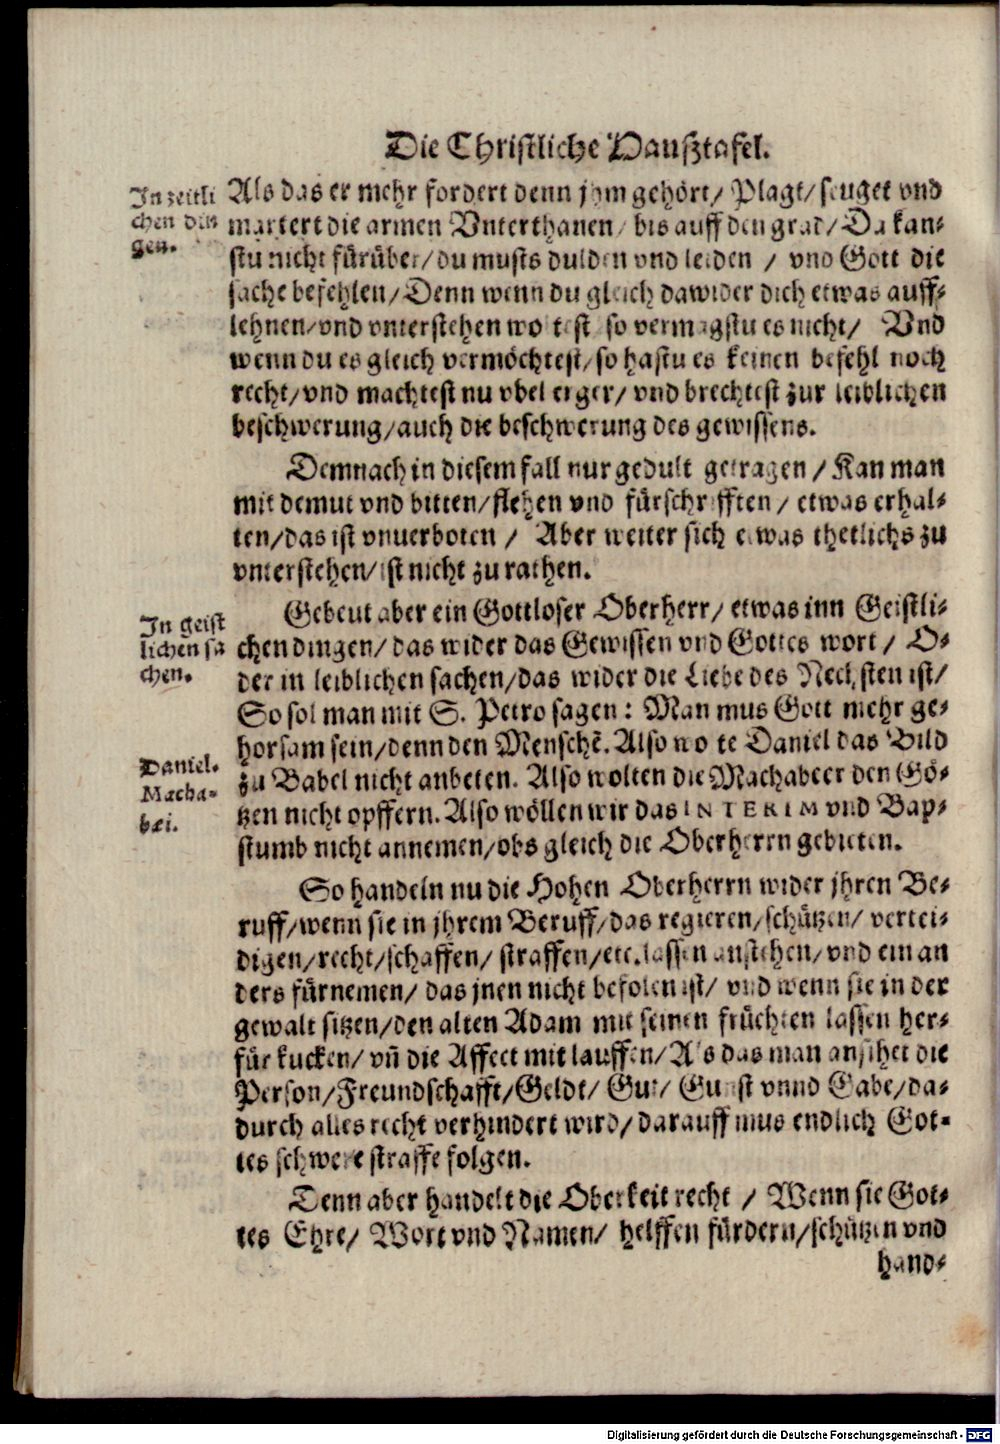 Die Christliche Haußtafel.
In zeitli
chen din
gen.
Als das er mehr fordert denn jhm gehört/ Plagt/ seuget vnd
martert die armen Vnterthanen/ bis auff den grad/ Da kan-
stu nicht fürüber/ du musts dulden vnd leiden / vnd Gott die
sache befehlen/ Denn wenn du gleich dawider dich etwas auff-
lehnen/ vnd vnterstehen woltest so vermagstu es nicht/ Vnd
wenn du es gleich vermöchtest/ so hastu es keinen befehl noch
recht/ vnd machtest nu vbel erger/ vnd brechtest zur leiblichen
beschwerung/ auch die beschwerung des gewissens.
Demnach in diesem fall nur gedult getragen / Kan man
mit demut vnd bitten/ flehen vnd fürschrifften / etwas erhal-
ten/ das ist vnuerboten / Aber weiter sich etwas thetlichs zu
vnterstehen/ ist nicht zu rathen.
In geist
lichen sa
chen.
Gebeut aber ein Gottloser Oberherr/ etwas inn Geistli-
chen dingen/ das wider das Gewissen vnd Gottes wort / O-
der in leiblichen sachen/ das wider die Liebe des Nechsten ist/
So sol man mit S. Petro sagen: Man mus Gott mehr ge-
horsam sein/ denn den Menschē. Also wolte Daniel das Bild
zu Babel nicht anbeten. Also wolten die Machabeer den Gö-
tzen nicht opffern. Also wöllen wir das INTERIM vnd Bap-
stumb nicht annemen/ obs gleich die Oberherrn gebieten.
Daniel.
Macha-
bei.
So handeln nu die Hohen Oberherrn wider jhren Be-
ruff/ wenn sie in jhrem Beruff/ das regieren/ schützen/ vertei-
digen/ recht/ schaffen/ straffen/ etc. lassen anstehen/ vnd ein an
ders fürnemen/ das jnen nicht befolen ist/ vnd wenn sie in der
gewalt sitzen/ den alten Adam mit seinen früchten lassen her-
für kucken/ vñ die Affect mit lauffen/ Als das man ansihet die
Person/ Freundschafft/ Geldt/ Gut/ Gunst vnnd Gabe/ da-
durch alles recht verhindert wird/ darauff mus endlich Got-
tes schwere straffe folgen.
Denn aber handelt die Oberkeit recht / Wenn sie Got-
tes Ehre/ Wort vnd Namen/ helffen fürdern/ schützen vnd
hand-
Digitalisierung gefördert durch die Deutsche Forschungsgemeinschaft - DFG